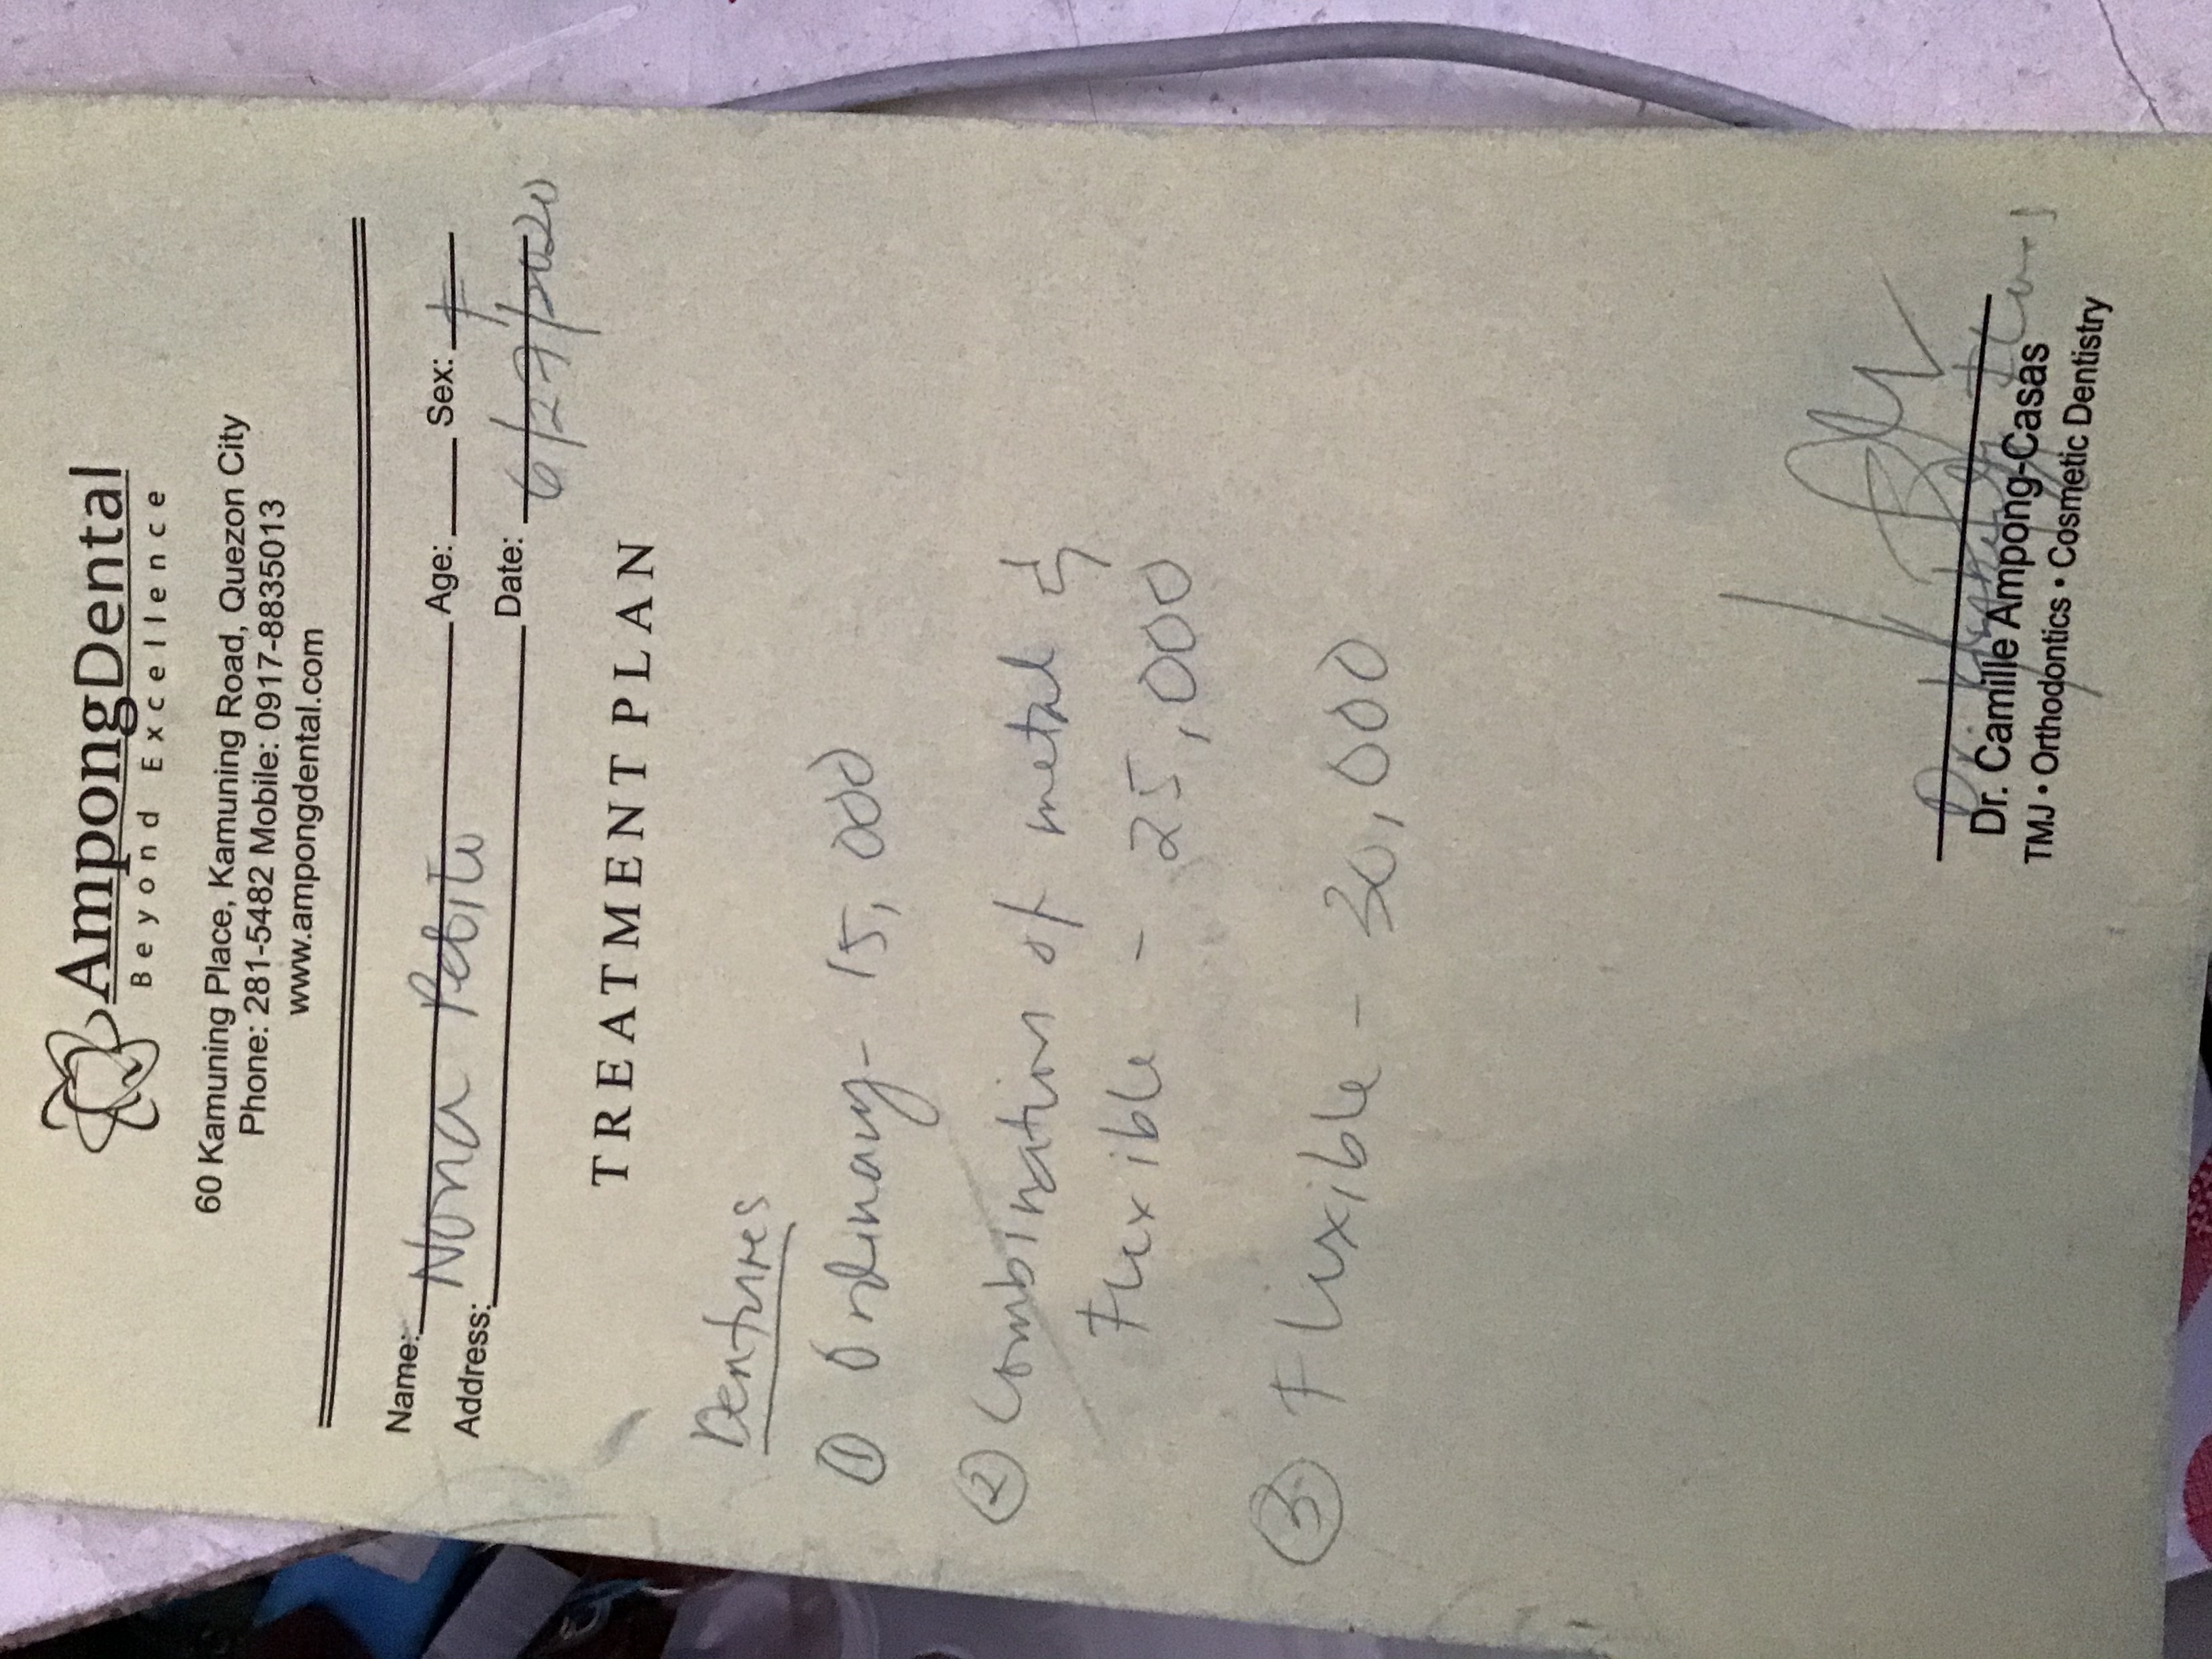 AmpongDental
Beyond Excellence
60 Kamuning Place, Kamuning Road, Quezon City
Phone: 281-5482 Mobile: 0917-8835013
www.ampongdental.com
Name: Norma Age: Sex: F
Address: Date: 6/27/2020
TREATMENT PLAN
Dentures
① Ordinary - 15,000
② Combination of metal &
Flexible - 25,000
③ Flexible - 30,000
Dr. Camille Ampong-Casas
TMJ • Orthodontics • Cosmetic Dentistry